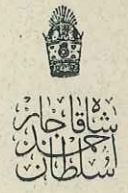 السلطان
احمد
شاه قاجار